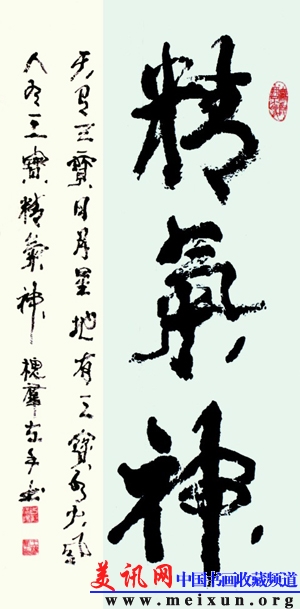 精氣神
天有三寶日月星地有三寶水火風
人有三寶精氣神 槐群左手書
美讯网 中国书画收藏频道
www.meixun.org